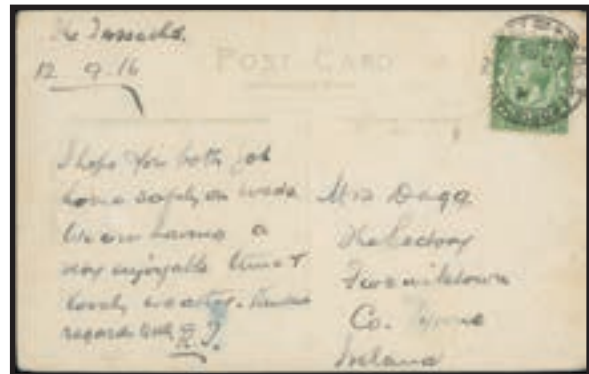 The Trossachs.
12 9.16
POST CARD
I hope you both got
home safely on weds
We are having a
very enjoyable time &
lovely weather. Kindest
regards
Mrs Dagg
The Rectory
Fivemiletown
Co. Tyrone
Ireland